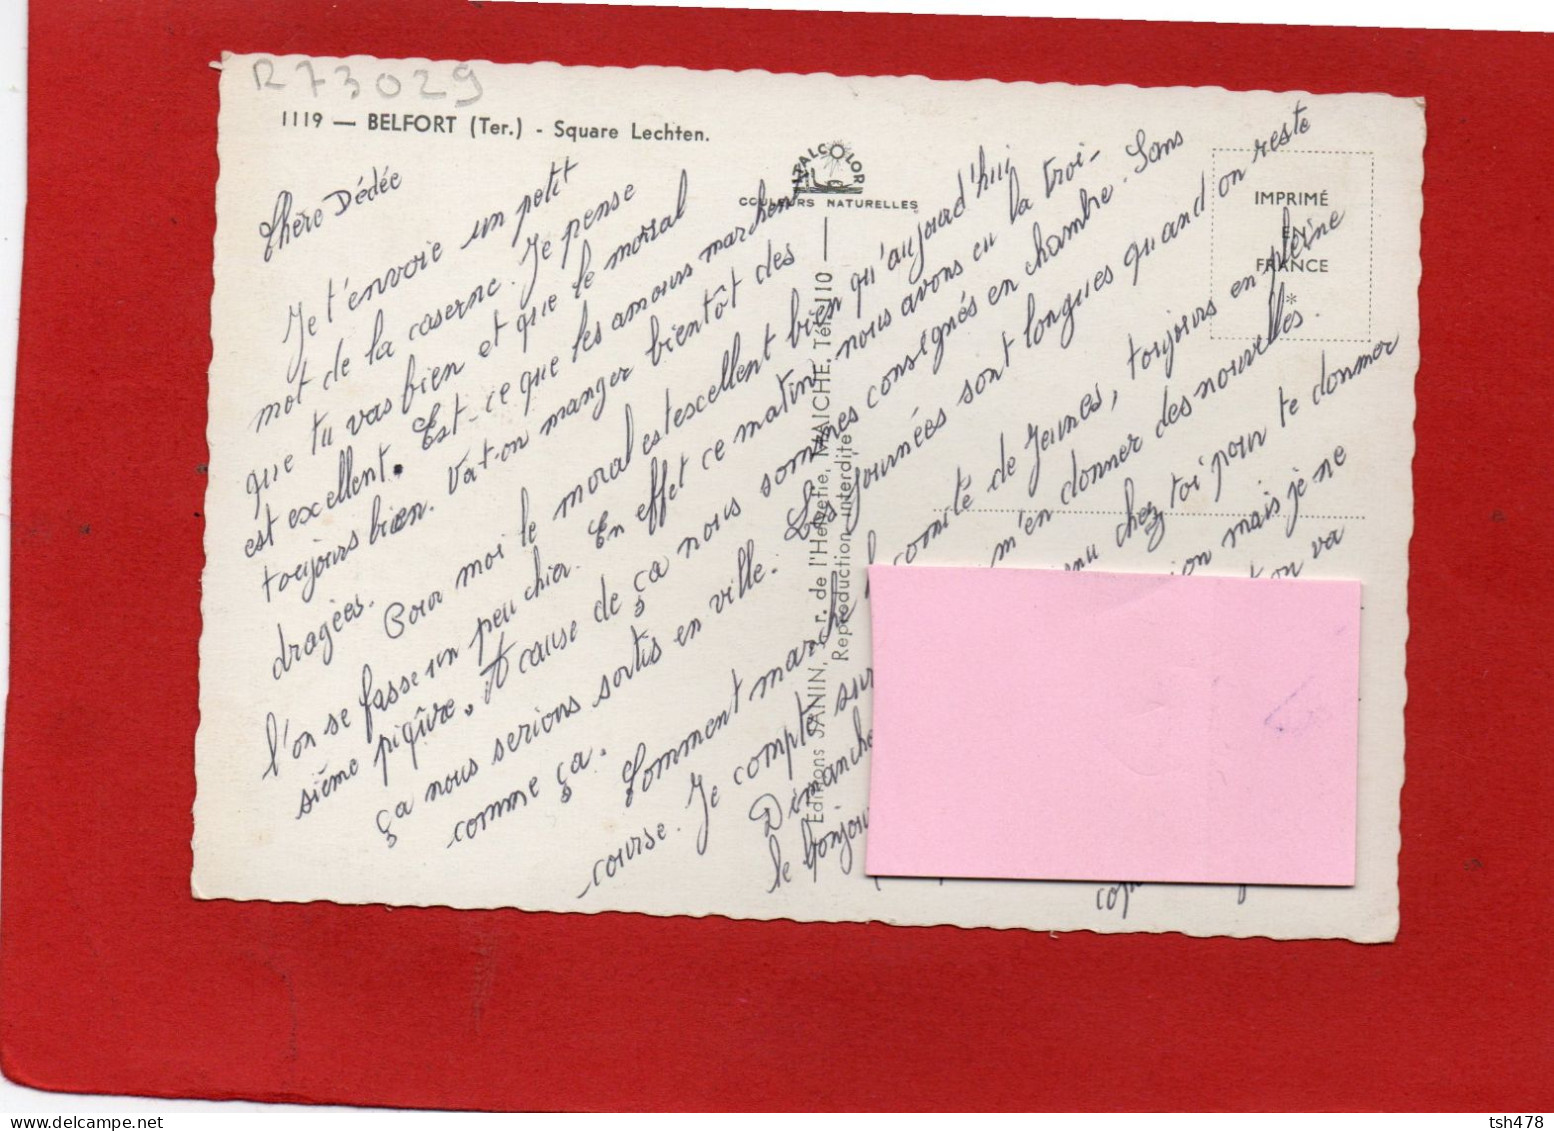 R73029
1119 — BELFORT (Ter.) - Square Lechten.
IPALCOLOR
COULEURS NATURELLES
IMPRIMÉ
EN
FRANCE
*
Editions JANIN, r. de l'Helvétie, MAICHE. Tél. 110
Reproduction interdite
Chère Dédée
Je t'envoie un petit
mot de la caserne. Je pense
que tu vas bien et que le moral
est excellent. Est-ce que les amours marchent
toujours bien. Vat-on manger bientôt des
dragées.
Pour moi le moral est excellent bien qu'aujourd'hui
l'on se fasse un peu chier. En effet ce matin nous avons eu la troi-
sième piqûre. A cause de ça nous sommes consignés en chambre. Sans
ça nous serions sortis en ville. Les journées sont longues quand on reste
comme ça.
Comment marche le comité de Jeunes, toujours en pleine
course. Je compte sur m'en donner des nouvelles.
Dimanche chez toi pour te donner
le bonjour mais je ne
on va
tsh478
www.delcampe.net